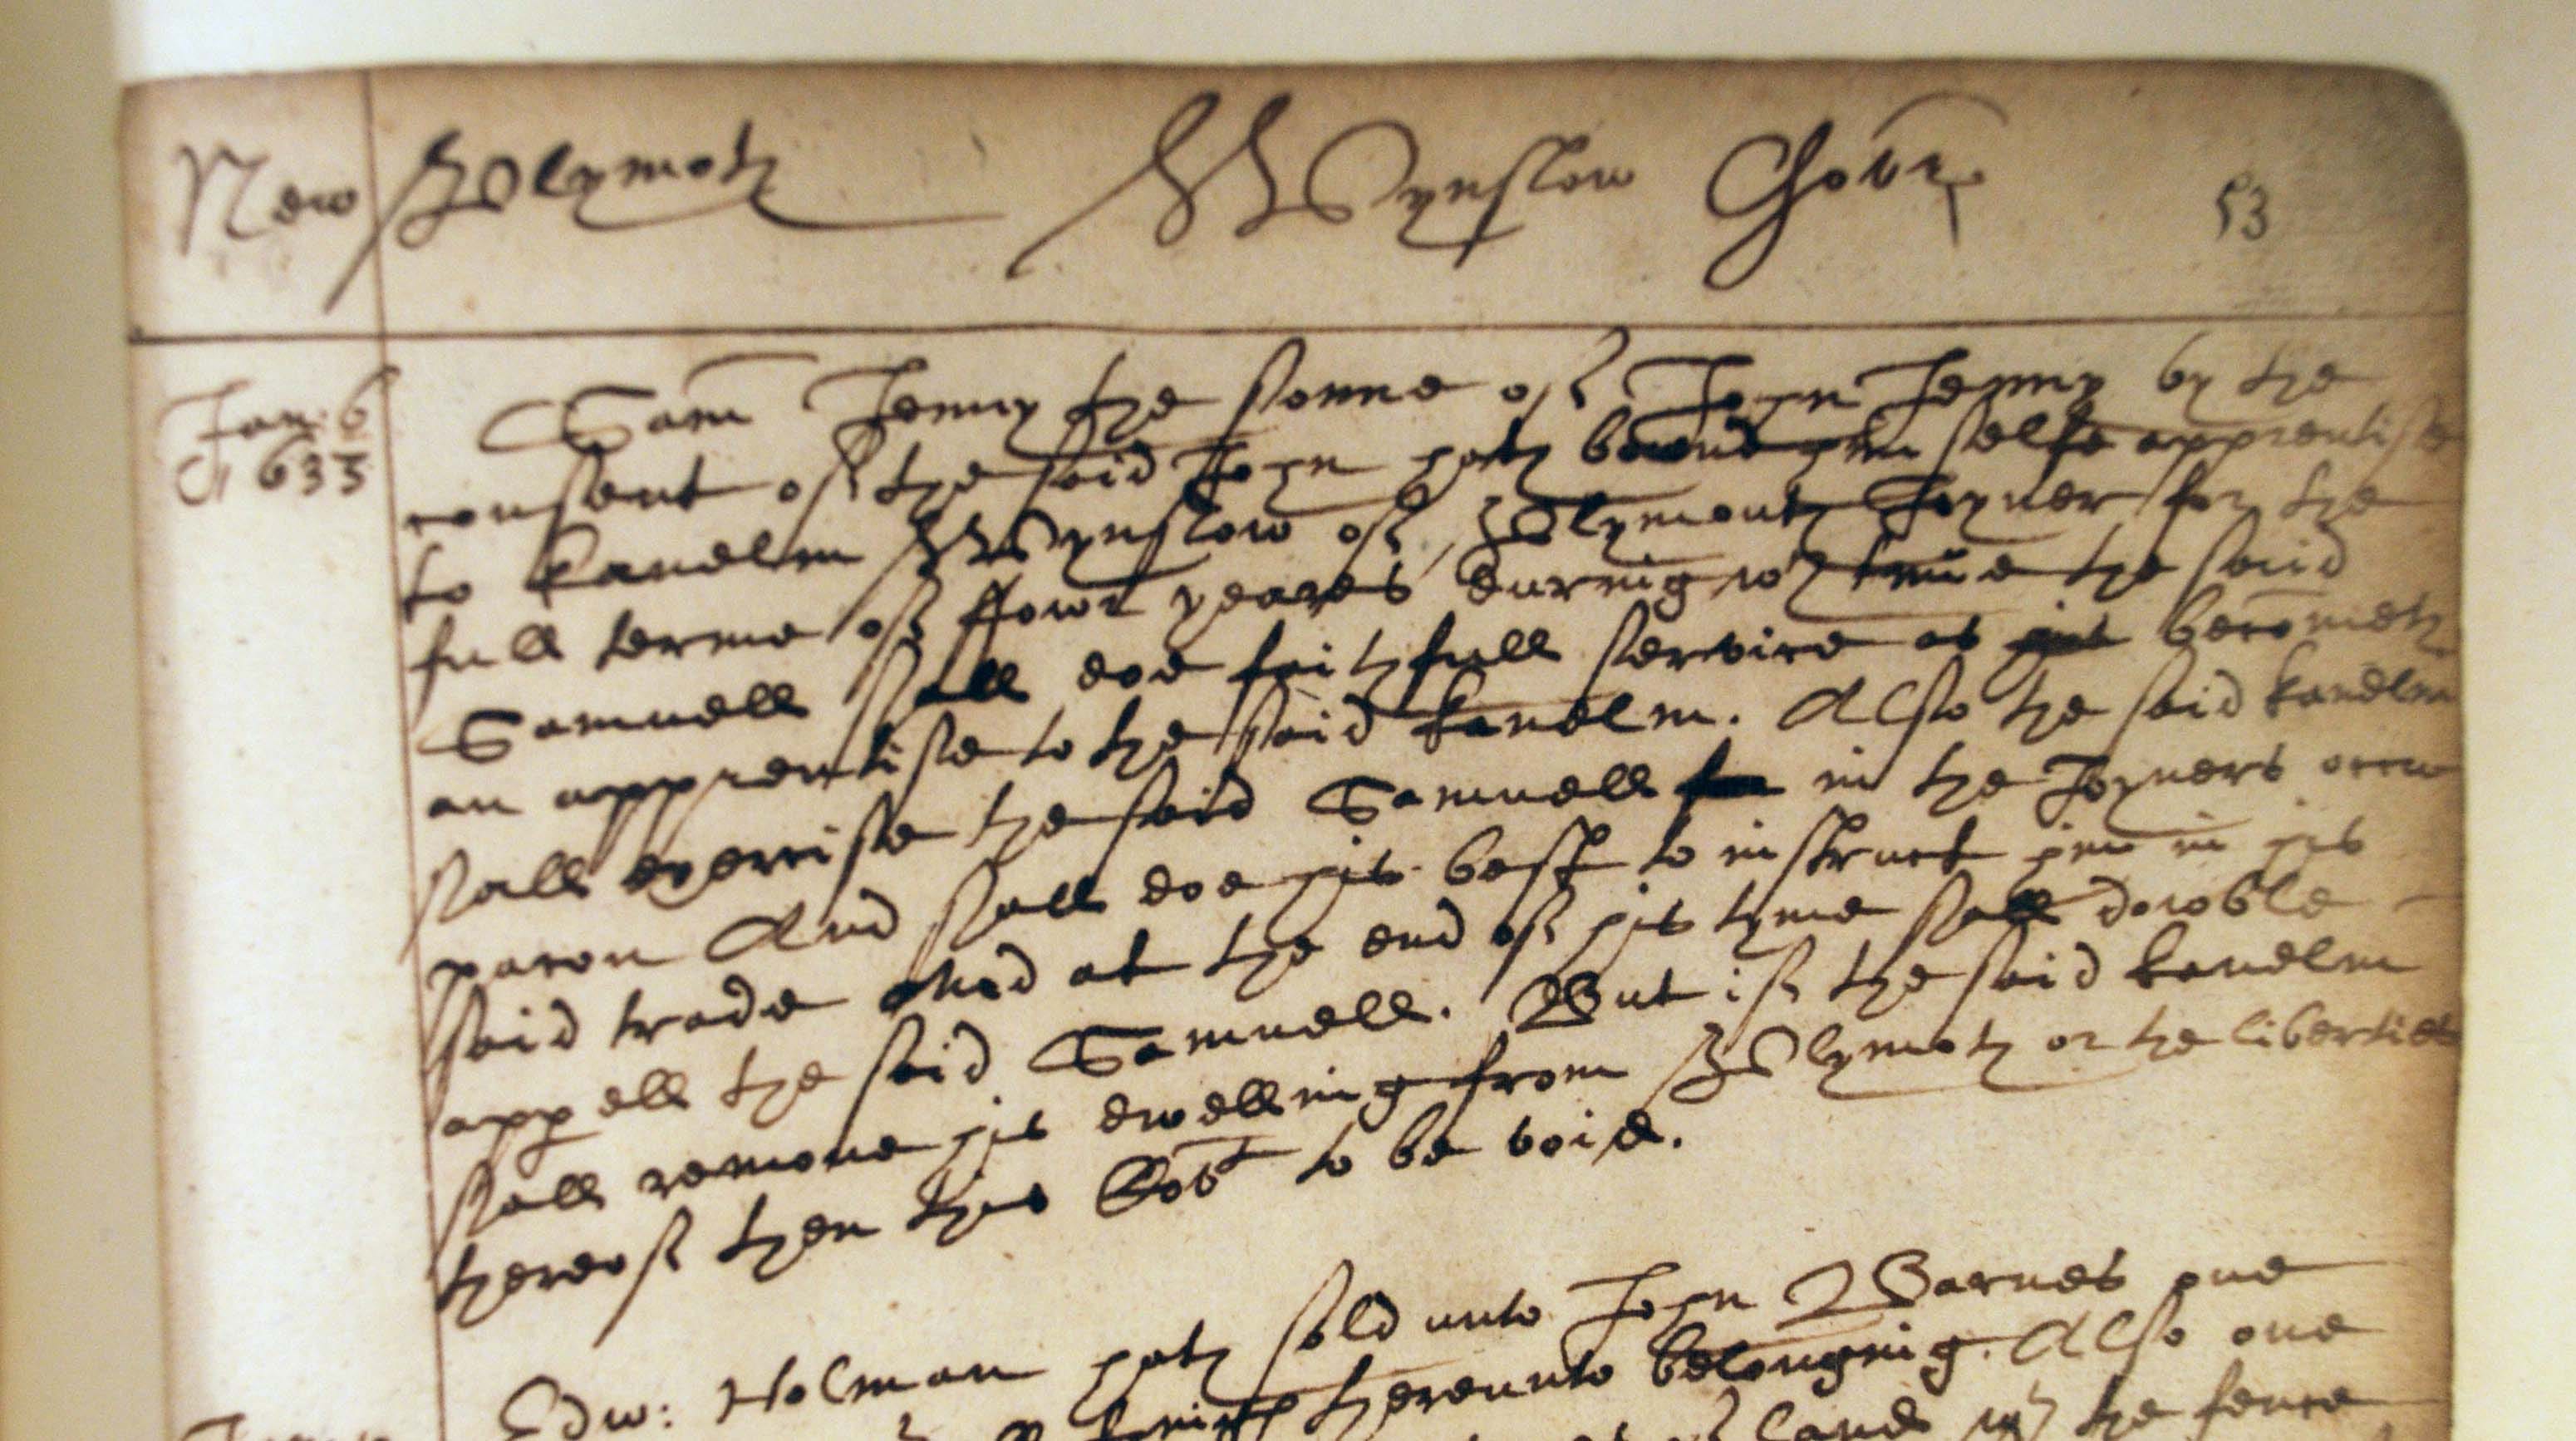 New Plymoth Wynslow Govr. 53
Jan: 6
1633
Sam Jenny the sonne of John Jenny by the
consent of the said John hath bound himselfe apprentise
to Kanelm Wynslow of Plymouth Joyner for the
full terme of ffowr yeares during wch time the said
Samuell shall doe faithfull service as becometh
an apprentise to the said Kanelm. Also the said Kanelm
shall exercise the said Samuell in the Joyners occu
pacon And shall doe his best to instruct him in his
said trade And at the end of his tyme shall dowble
appell the said Samuell. But if the said Kanelm
shall remove his dwelling from Plymoth or the liberties
thereof then this Covt to be void.
Edw: Holman hath sold unto John Barnes one
thereunto belonging. Also one
land wth the fence